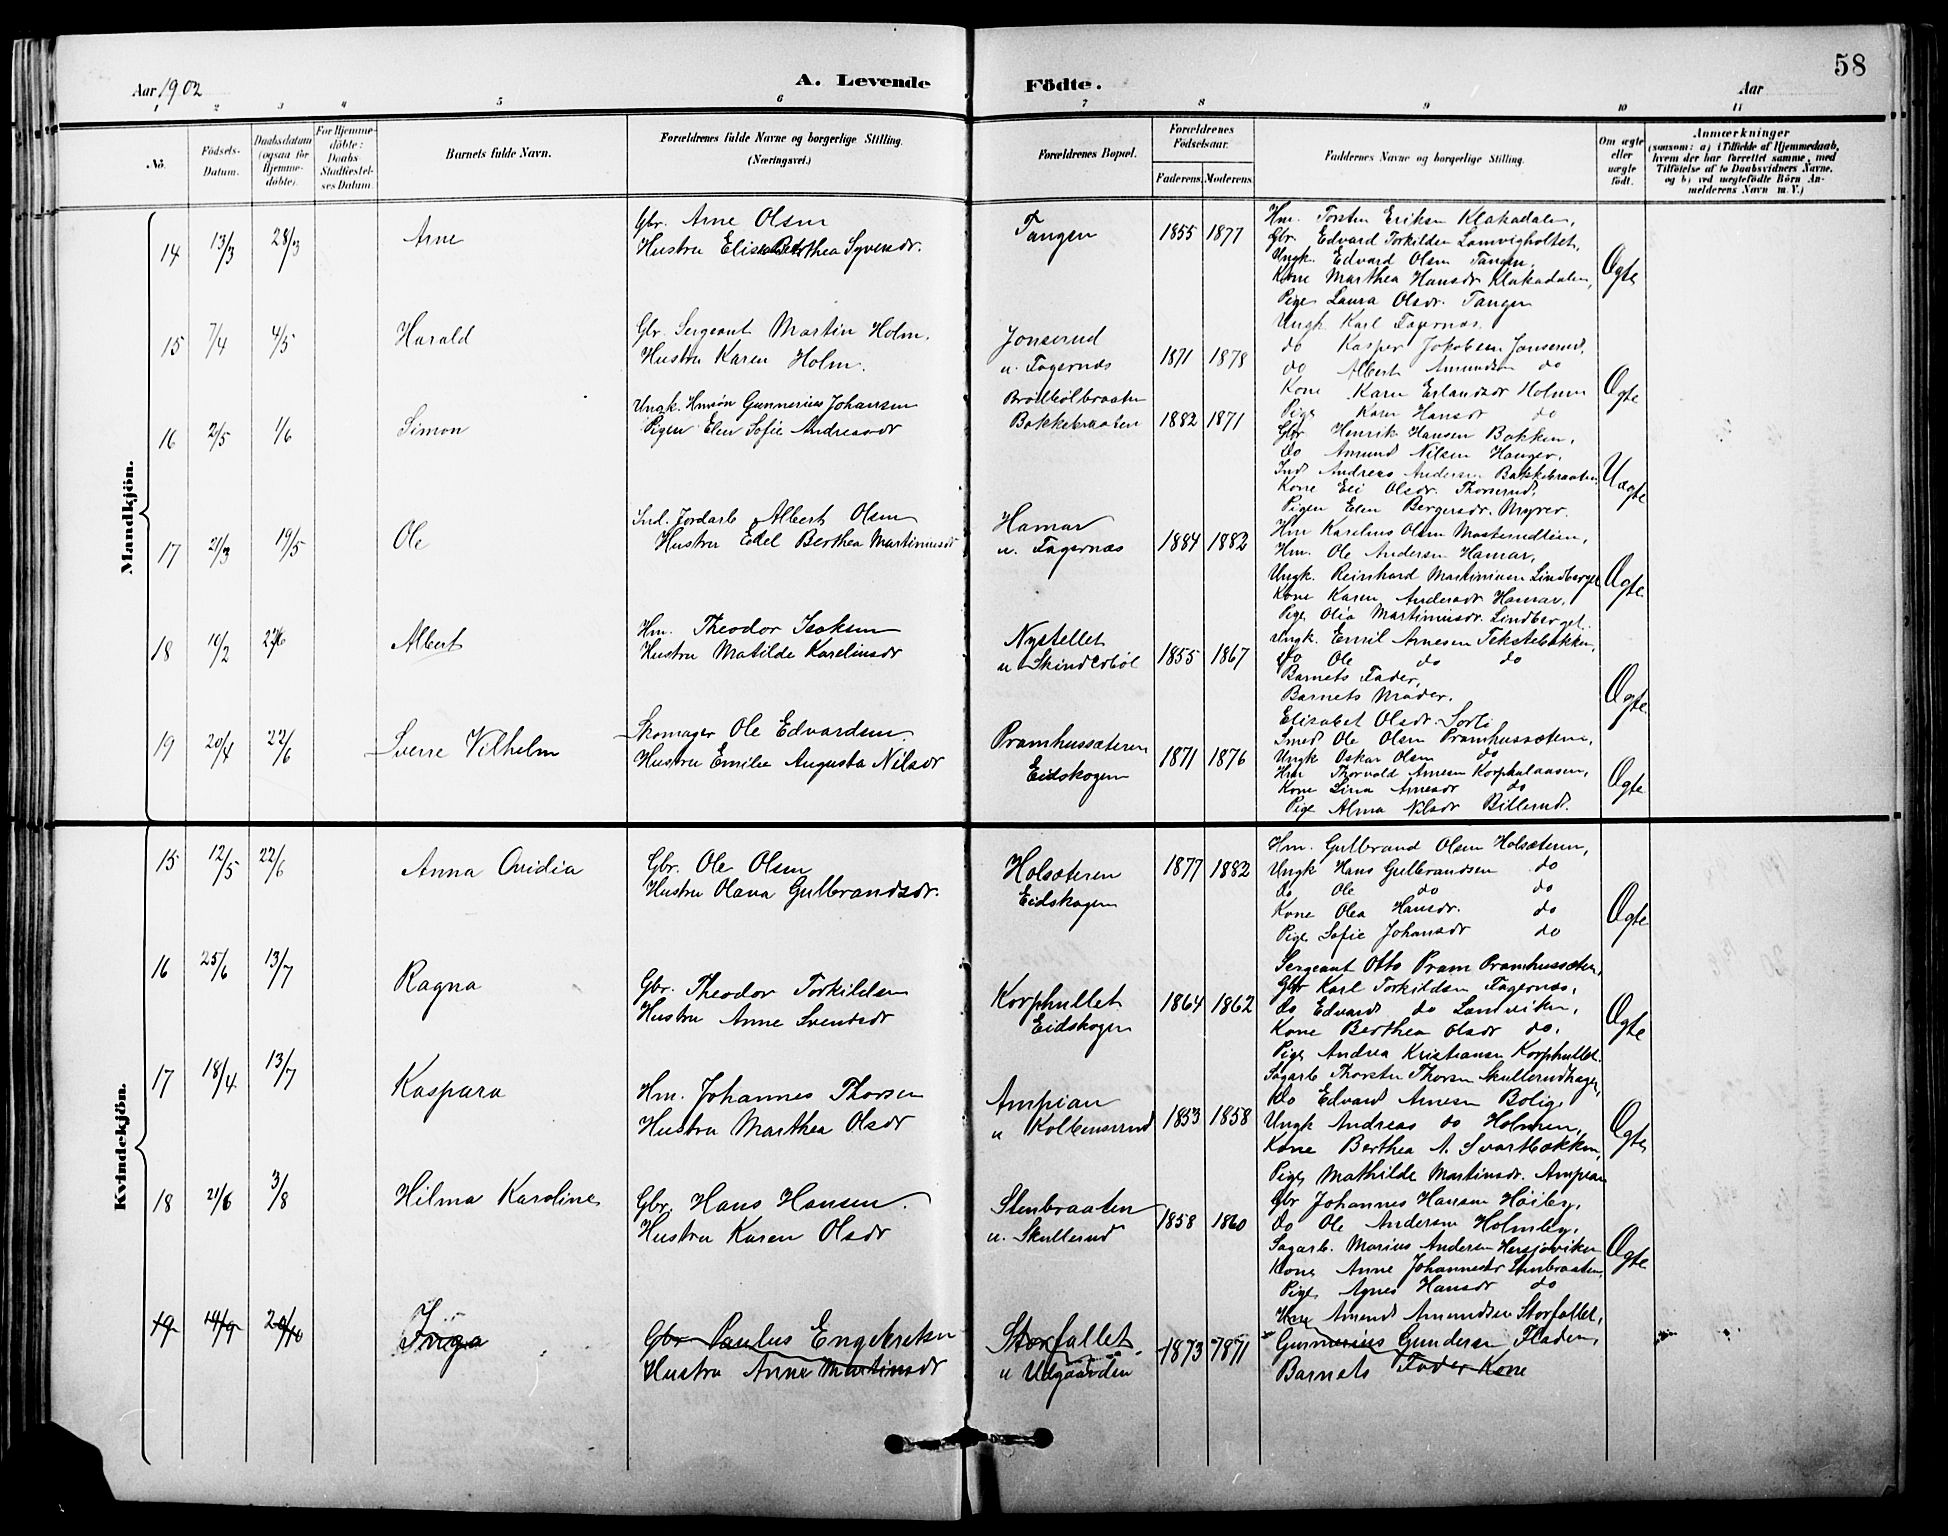 58
Aar 1902
A. Levende
Födte.
Aar
1 2 3 4 5 6 7 8 9 10 11
No.
Födsels-Datum.
Daabsdatum (ogsaa for Hjemme-döbte).
For Hjemme-döbte: Daabs-Stadfæstel-ses Datum.
Barnets fulde Navn.
Forældrenes fulde Navne og borgerlige Stilling. (Næringsvei.)
Forældrenes Bopæl.
Forældrenes Födselsaar.
Faderens. Moderens.
Faddernes Navne og borgerlige Stilling.
Om ægte eller uægte födt.
Anmærkninger
(saasom: a) i Tilfælde af Hjemmedaab,
hvem der har forrettet samme, med
Tilföielse af to Daabsvidners Navne,
og b) ved uægtefödte Börn An-
melderens Navn m. V.)
Mandkjön.
14 13/3 28/3 Arne
Gbr. Arne Olsen
Hustru Elise Berthea Syversdr.
Tangen
1855 1877
Hm. Torsten Eriksen Klakadalen,
Gbr. Edvard Torkildsen Lomvigholtet,
Ungk. Edvard Olsen Tangen,
Kone Marthea Hansdr Klakadalen,
Pige Laura Olsdr. Tangen
Ægte
15 7/4 4/5 Harald
Gbr. Sergeant Martin Holm.
Hustru Karen Holm.
Jonserud
u. Fagernæs
1871 1878
Ungk. Karl Fagernæs.
do Kasper Jakobsen Jonserud,
do Albert Amundsen do
Kone Karen Erlandsdr Holmen
Pige Karen Hansdr do
Ægte
16 2/5 1/6 Simon
Ungk. Hmsön Gunnerius Johansen
Pigen Elen Sofie Andreasdr
Brødbølbraaten
Bakkebraaten
1882 1871
Gbr Henrik Hansen Bakken,
do Amund Nilsen Hanger,
Ind. Andreas Andersen Bakkebraaten
Kone Eli Olsdr. Thorserud,
Pigen Elen Bergersdr. Myrer.
Uægte
17 2/3 19/5 Ole
Ind. Jordarb Albert Olsen
Hustru Edel Berthea Martinusdr
Hamar
u. Fagernæs
1884 1882
Hm Karelius Olsen Masterudlien,
Hm. Ole Andersen Hamar,
Ungk. Reinhard Martiniusen Lindberget
Kone Karen Andersdr Hamar,
Pige Olia Martiniusdr. Lindberget.
Ægte
18 10/2 Albert
Hm. Theodor Isaksen
Hustru Matilde Karelinsdr
Nystellet
u Skinderbøl
1855 1867
Ungk. Emil Arnesen Tekstebakken,
do Ole do do
Barnets Fader,
Barnets Moder.
Elisabet Olsdr. Sorli
Ægte
19 20/4 22/6 Sverre Vilhelm
Skomager Ole Edvardsen
Hustru Emilie Augusta Nilsdr
Pramhussæteren
Eidskogen
1871 1876
Smed Ole Olsen Pramhussæteren,
Ungk Oskar Olsen do
Hm Thorvald Arnesen Korphulaasen,
Kone Lina Arnesdr do
Pige Alma Nilsdr Billerud.
Ægte
Kvindekjön.
15 12/5 22/6 Anna Ovidia
Gbr. Ole Olsen
Hustru Olava Gulbrandsdr.
Holsæteren
Eidskogen
1877 1882
Hm. Gulbrand Olsen Holsæteren,
Ungk Hans Gulbrandsen do
do Ole do do
Kone Olea Hansdr. do
Pige Sofie Johansdr do
Ægte
16 25/6 13/7 Ragna
Gbr. Theodor Torkildsen
Hustru Anne Svendsdr
Korphullet
Eidskogen
1864 1862
Sergeant Otto Pram Pramhussæteren,
Gbr Karl Torkildsen Fagernæs,
do Edvard do Lomviken,
Kone Berthea Olsdr do,
Pige Andrea Kristiansen Korphullet.
Ægte
17 18/4 13/7 Kaspara
Hm. Johannes Thorsen
Hustru Marthea Olsdr
Ampian
u Kolbenserud
1853 1858
Sagarb Thorsten Thorsen Skullerudhagen
do Edvard Arnesen Bolig,
Ungk Andreas do Holmen,
Kone Berthea A. Svartbækken,
Pige Mathilde Martinsdr. Ampian
Ægte
18 21/6 3/8 Hilma Karoline
Gbr. Hans Hansen
Hustru Karen Olsdr
Stenbraaten
u. Skullerud
1858 1860
Gbr Johannes Hansen Høiby,
do Ole Andersen Holmby,
Sagarb. Marius Andersen Hersjøviken
Kone Anne Johannesdr Stenbraaten,
Pige Agnes Hansdr do
Ægte
19 14/9 20/10 Inga
Gbr Paulus Engebretsen
Hustru Anne Martinsdr
Storfallet
u Udgaarden
1873 1871
Hm Amund Amundsen Storfallet,
Gunnerius Gundersen Fladen,
Barnets Fader Kone